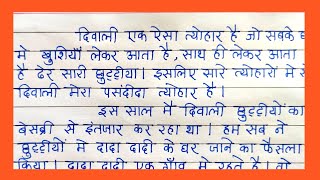 दिवाली एक ऐसा त्योहार है जो सबके
मे खुशियाँ लेकर आता है, साथ ही लेकर आता
है ढेर सारी छुट्टीया। इसलिए सारे त्योहारो मे से
दिवाली मेरा पसंदीदा त्योहार है।
इस साल मै दिवाली छुट्टीयों का
बेसब्री से इंतजार कर रहा था। हम सब ने
छुट्टीयों मे दादा दादी के घर जाने का फैसला
किया। दादा दादी एक गाँव मे रहते है। तो